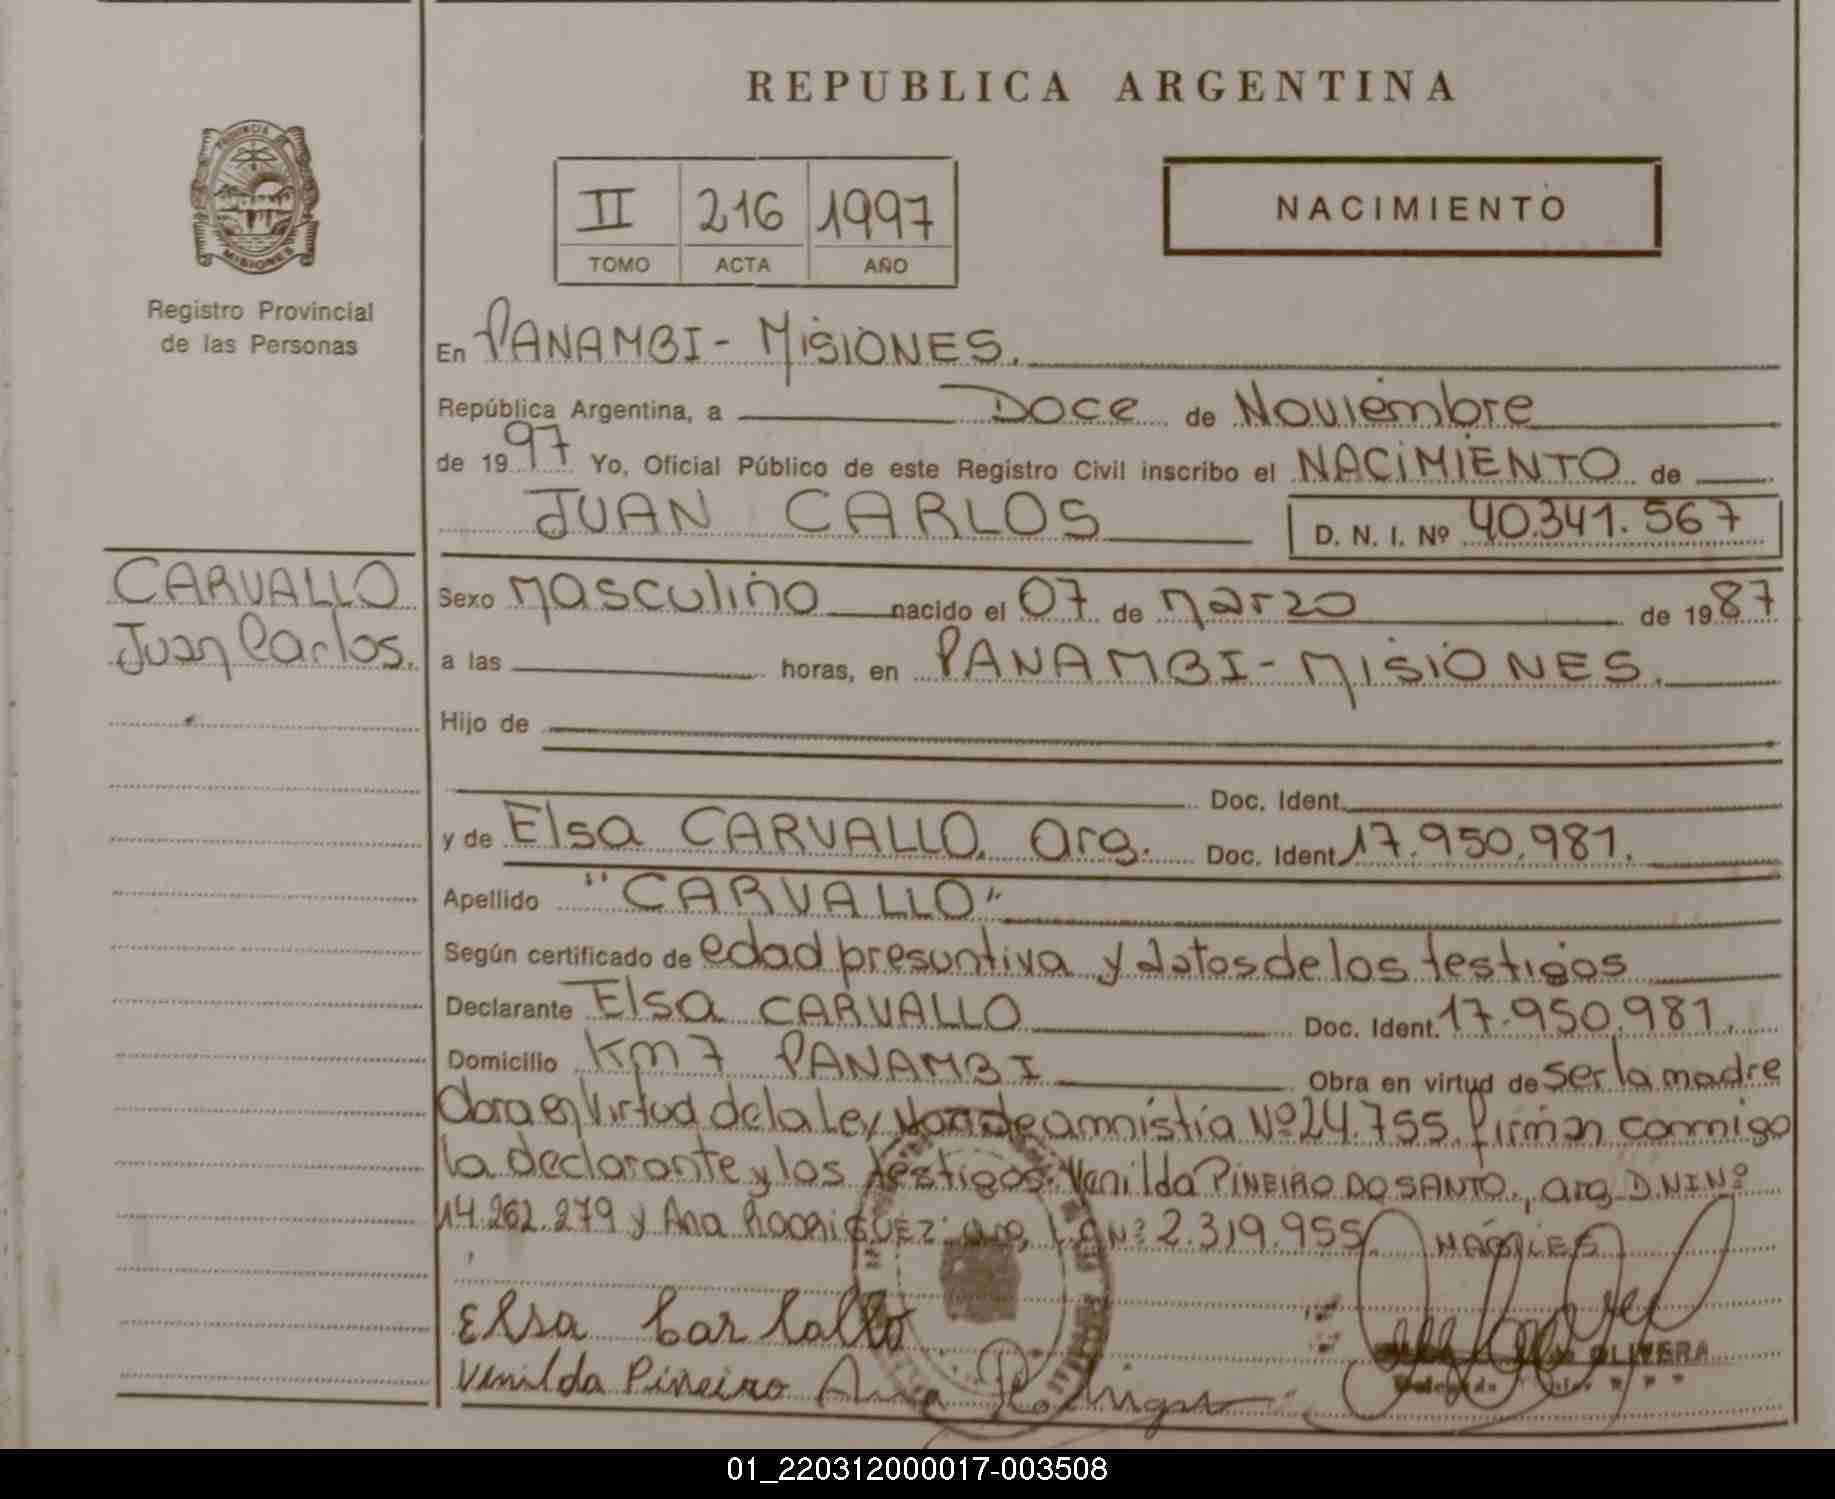 REPUBLICA ARGENTINA
PROVINCIA DE
MISIONES
Registro Provincial
de las Personas
II 216 1997
TOMO ACTA AÑO
NACIMIENTO
En PANAMBI - MISIONES.
República Argentina, a Doce de Noviembre
de 1997 Yo, Oficial Público de este Registro Civil inscribo el NACIMIENTO de
JUAN CARLOS D. N. I. Nº 40.341.567
CARVALLO
Juan Carlos.
Sexo Masculino nacido el 07 de Marzo de 1987
a las horas, en PANAMBI - MISIONES.
Hijo de
Doc. Ident.
y de Elsa CARVALLO. arg. Doc. Ident. 17.950.981.
Apellido "CARVALLO"
Según certificado de edad presuntiva y datos de los testigos
Declarante Elsa CARVALLO Doc. Ident. 17.950.981.
Domicilio Km 7 PANAMBI Obra en virtud de ser la madre
Obra en Virtud de la Ley de amnistía Nº 24.755. firman conmigo
la declarante y los testigos: Venilda PINEIRO DO SANTO., arg. D.N.I Nº
14.262.279 y Ana RODRIGUEZ: arg. L.C Nº 2.319.955
Elsa Carballo
Venilda Piñeiro Ana
OLIVERA
01_220312000017-003508